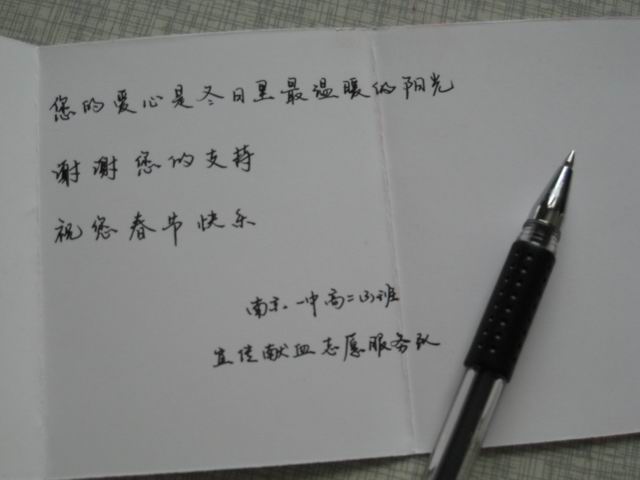 您的爱心是冬日里最温暖的阳光
谢谢您的支持
祝您春节快乐
南京一中高二(3)班
宣传献血志愿服务队